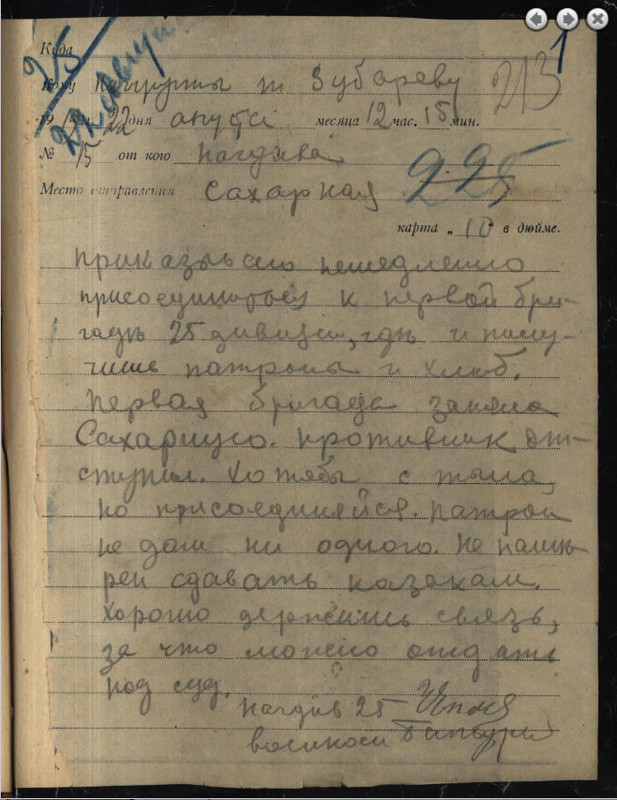 25
22 Август
1
213
Куда
Кому Начгруппы т Зубареву
19 22 дня августа месяца 12 час. 15 мин.
№ 15 от кого Начдива
225
Место отправления Сахарная
карта „10“ в дюйме.
приказываю немедленно
присоединиться к первой бри-
гаде 25 дивизии, где и полу-
чишь патроны и хлеб.
Первая бригада заняла
Сахарную. Противник от-
ступил. Хотябы с тыла,
но присоединяйся. Патрон
не дам ни одного. Не наме-
рен сдавать казакам.
Хорошо держишь связь,
за что можно отдать
под суд.
Начдив 25
военком